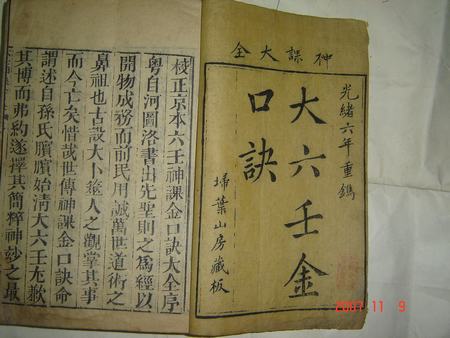 神課大全
光緒六年重鐫
大六壬金
口訣
埽葉山房藏板
校正京本六壬神課金口訣大全序
粵自河圖洛書出先聖則之為經以
開物成務而前民用誠萬世道術之
鼻祖也古設大卜筮人之觀掌其事
而今亡矣惜哉世傳神課金口訣命
謂述自孫氏臏臏始清大六壬尨歉
其博而弗約遂擇其簡粹神妙之最
2007 11 9